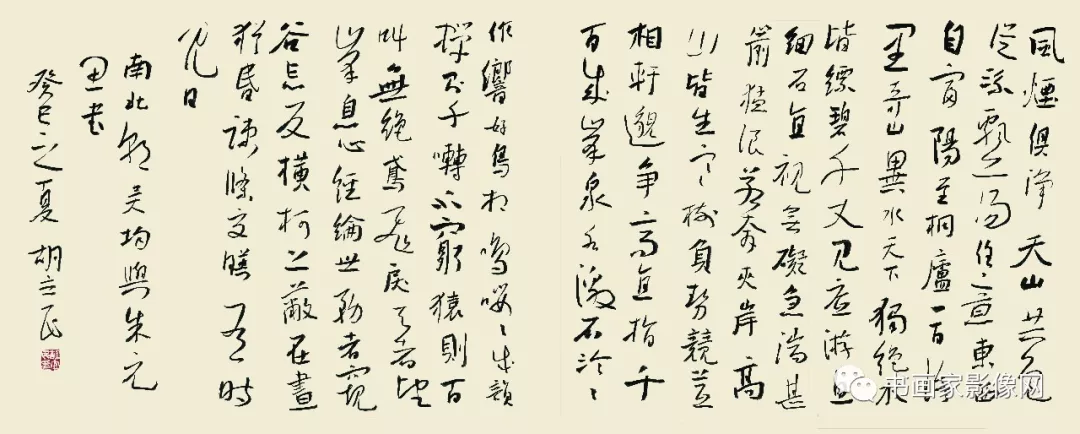 風煙俱淨天山共色
從流飄蕩任意東西
自富陽至桐廬一百許
里奇山異水天下獨絕水
皆縹碧千丈見底游魚
細石直視無礙急湍甚
箭猛浪若奔夾岸高
山皆生寒樹負勢競
相軒邈爭高直指千
百成峯泉水激石泠〻
作響好鳥相鳴嚶〻成韻
蟬則千囀不窮猿則百
叫無絕鳶飛戾天者望
峯息心經綸世務者窺
谷忘反橫柯上蔽在晝
猶昏疎條交映有時
見日
南北朝吳均與朱元
思書
癸巳之夏 胡立民
书画家影像网